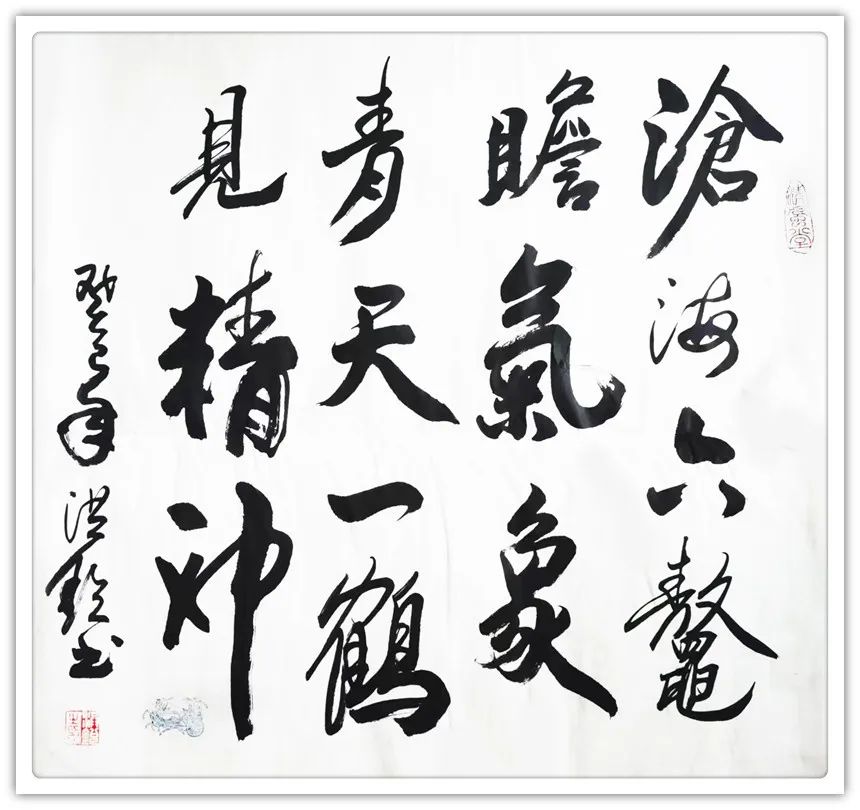 滄海六鼇
瞻氣象
青天一鶴
見精神
癸巳年洪鈴書